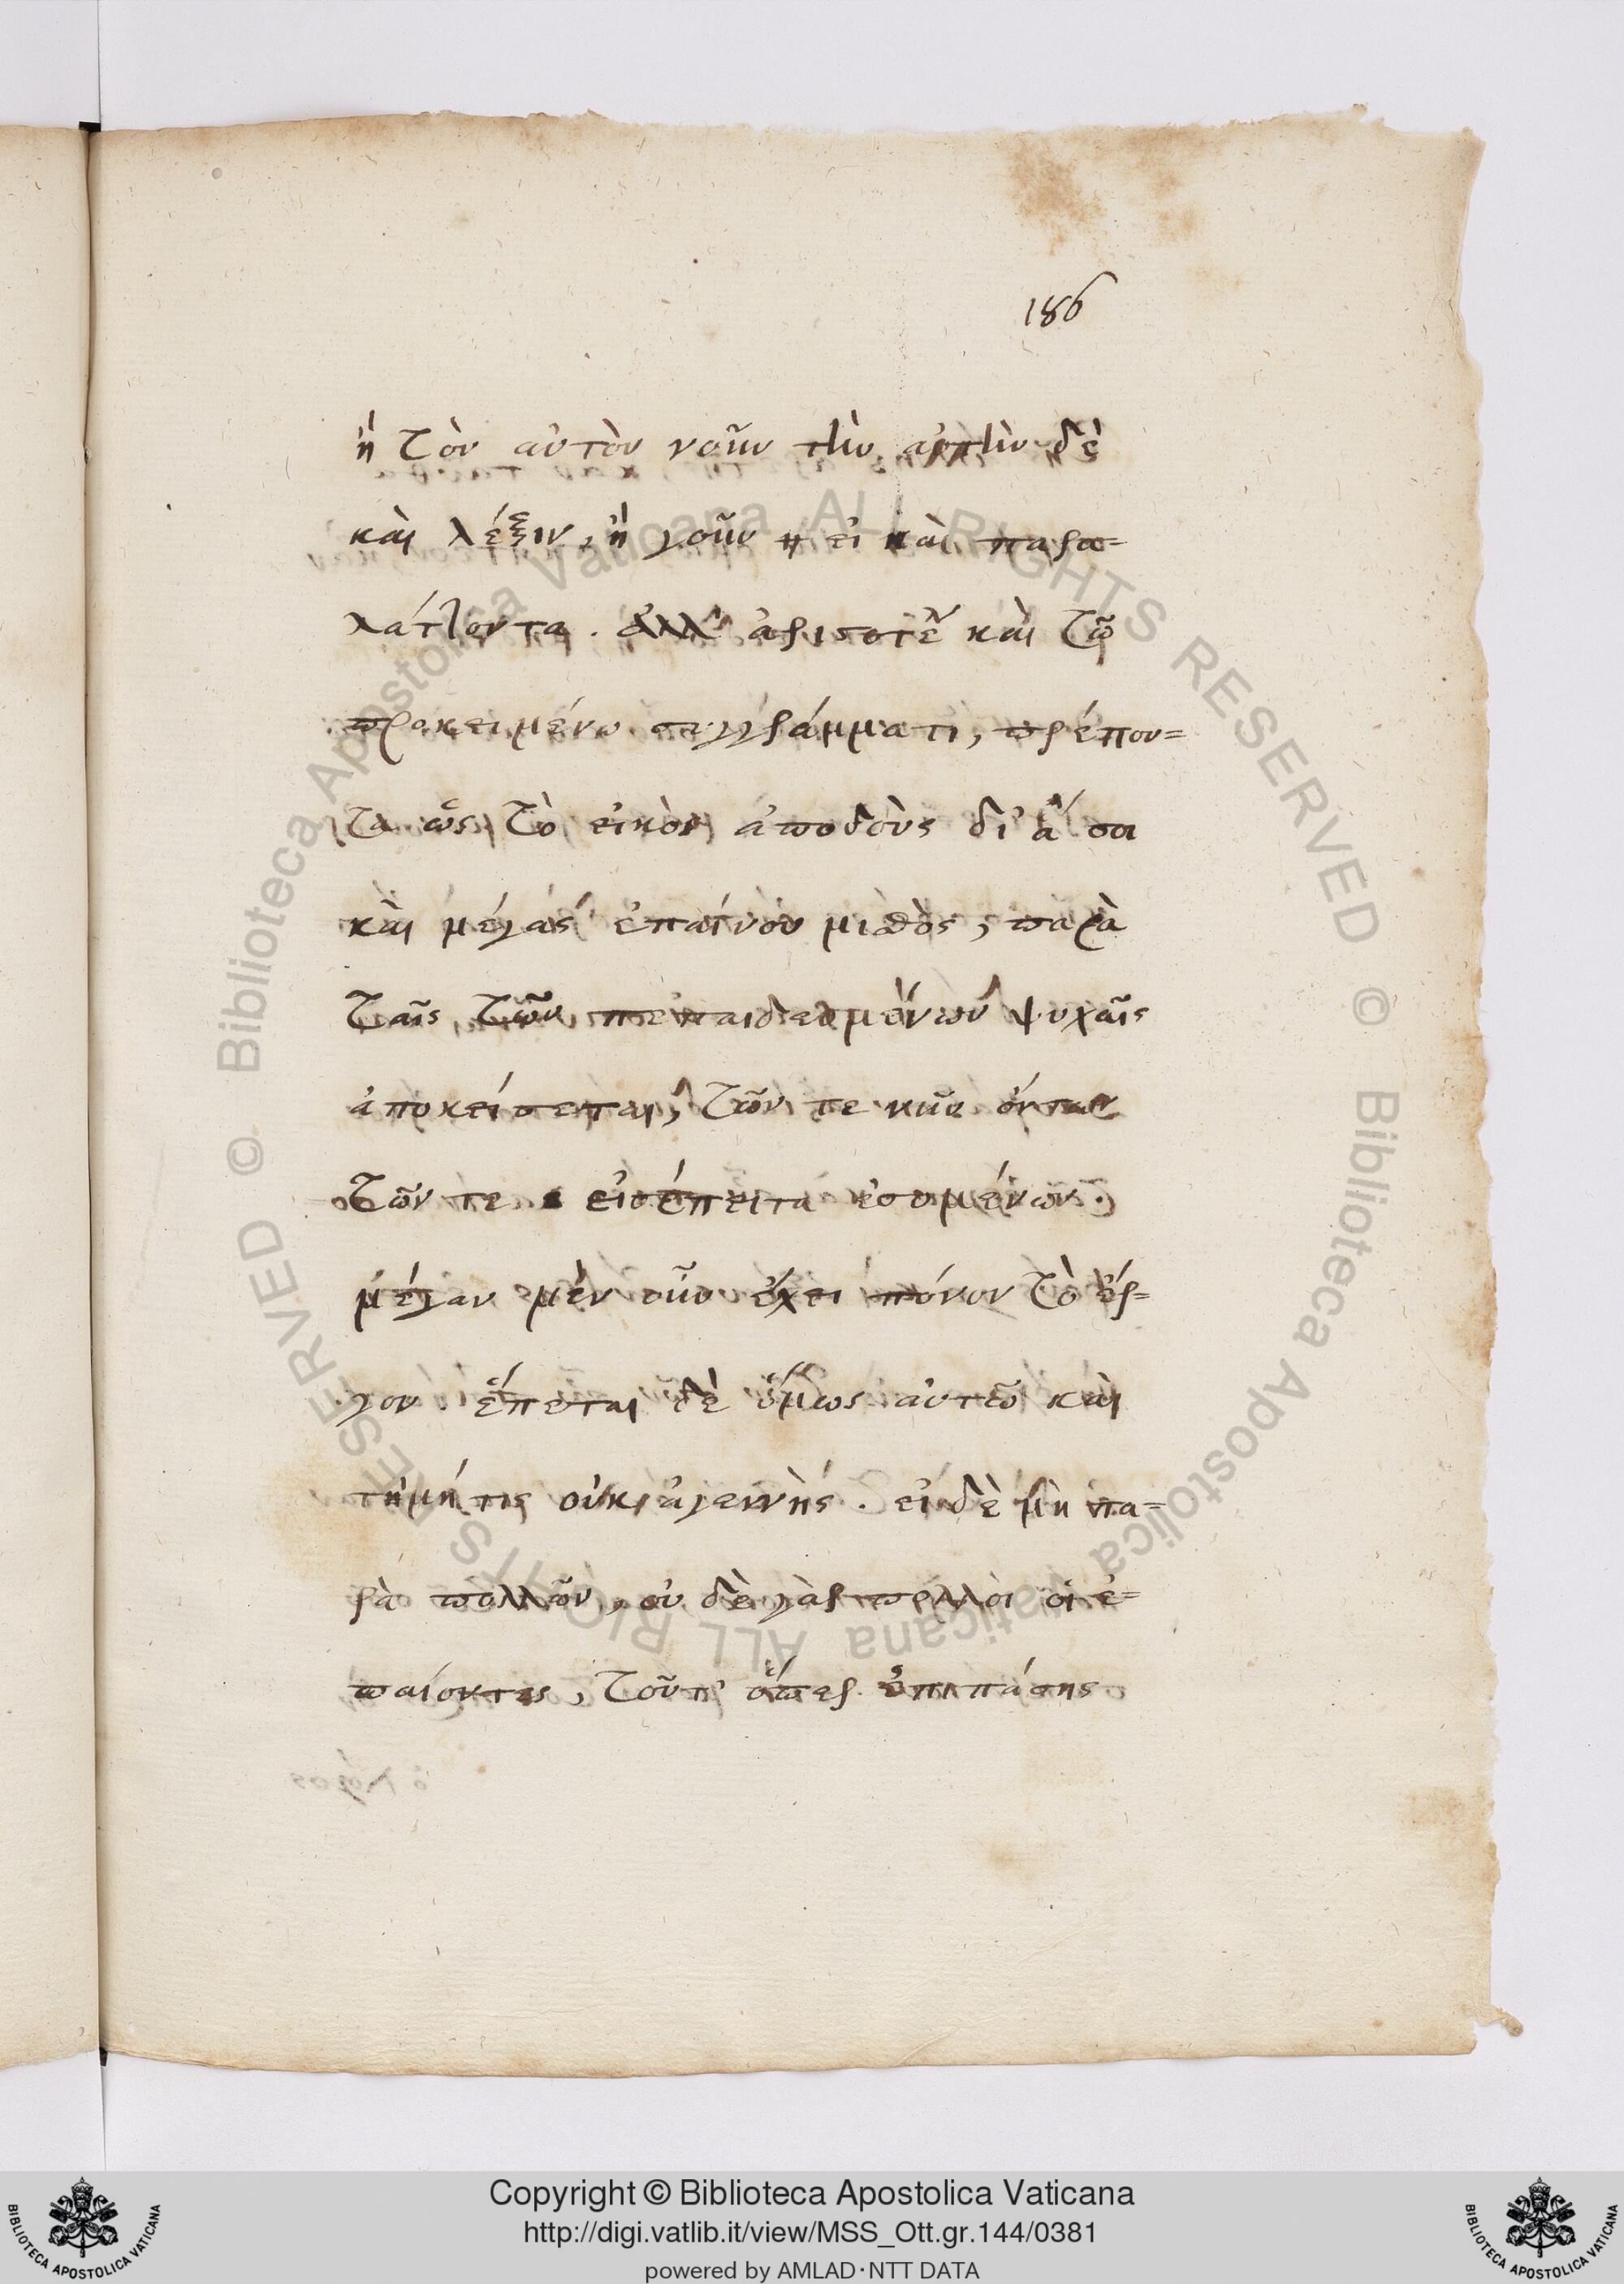 186
ἢ τὸν αὐτὸν νοῦν τὴν αὐτὴν δὲ
καὶ λέξιν, ἢ γοῦν ἢ εἰ καὶ παρα-
λάττοντα. ἀλλ' καὶ τῷ
προκειμένω συγγράμματι, πρέπον-
τα ὡς τὸ εἰκὸς ἀποδοὺς δι' ἅ σοι
καὶ μέγας ἐπαίνου μισθὸς, παρὰ
ταῖς τῶν πεπαιδευμένων ψυχαῖς
ἀποκείσεται, τῶν τε νῦν ὄντων
τῶν τε εἰσέπειτα ἐσομένων.
μέγαν μὲν οὖν ἔχει πόνον τὸ ἔρ-
γον. ἕπεται δὲ ὅμως αὐτῶ καὶ
τιμή τις οὐκ ἀγεννὴς. εἰ δὲ μὴ πα-
ρὰ πολλῶν, οὐ δὲ γὰρ πολλοὶ οἱ ἐ-
παΐοντες, τοῦτ' ὅπερ ἐπιπάσης
Copyright © Biblioteca Apostolica Vaticana
http://digi.vatlib.it/view/MSS_Ott.gr.144/0381
powered by AMLAD·NTT DATA
BIBLIOTECA APOSTOLICA VATICANA
BIBLIOTECA APOSTOLICA VATICANA
© Biblioteca Apostolica Vaticana ALL RIGHTS RESERVED
© Biblioteca Apostolica Vaticana ALL RIGHTS RESERVED